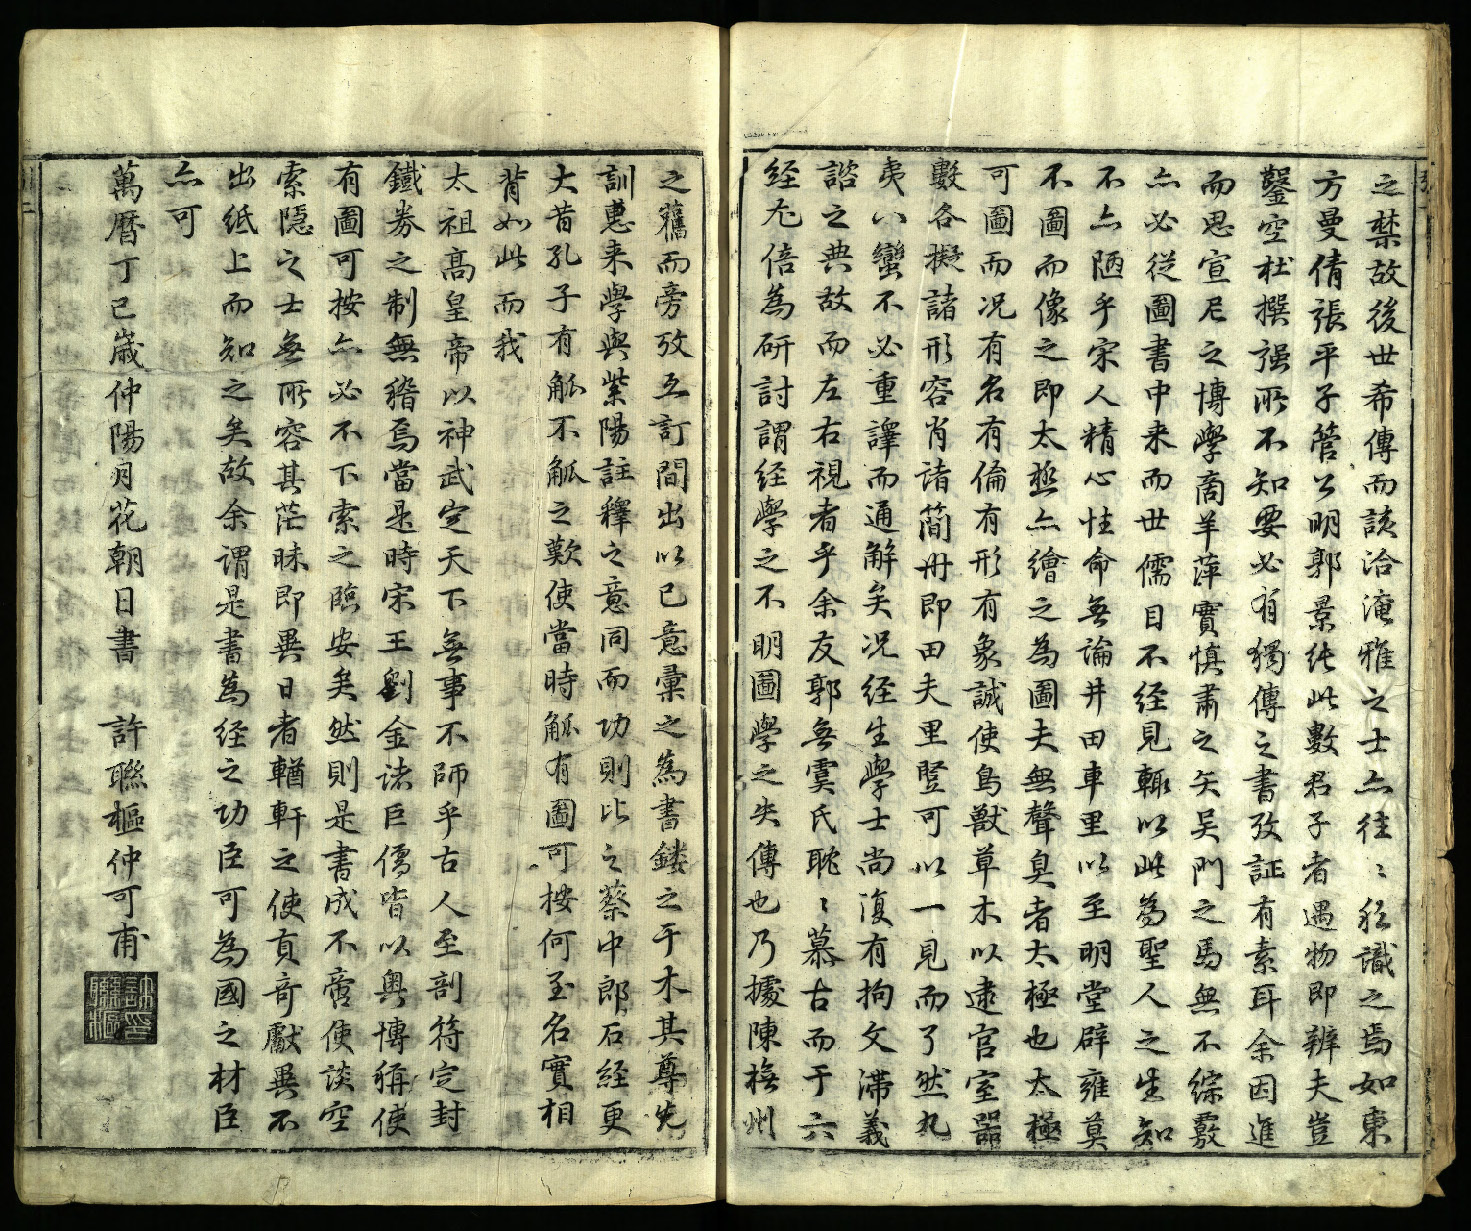 之禁故後世希傳而談洽淹雅之士亦往〻稔識之焉如東
方曼倩張平子管公明郭景純此數君子者遇物即辨夫豈
鑿空杜撰强所不知要必有獨傳之書攷証有素耳余因進
而思宣尼之博學商羊萍實慎肅之矢吴門之馬無不綜覈
亦必從圖書中来而世儒目不經見輙以此為聖人之生知
不亦陋乎宋人精心性命無論井田車里以至明堂辟雍莫
不圖而像之即太極亦繪之為圖夫無聲臭者太極也太極
可圖而况有名有倫有形有象誠使鳥獸草木以逮宫室器
數各擬諸形容肖諸簡冊即田夫里豎可以一見而了然九
夷八蠻不必重譯而通解矣况經生學士尚復有拘文滯義
諮之典故而左右視者乎余友郭無虞氏耽〻慕古而于六
經尤倍為研討謂経學之不明圖學之失傳也乃據陳撫州
之舊而旁攷互訂間出以己意彙之為書鏤之于木其尊先
訓惠来學與紫陽註釋之意同而功則比之蔡中郎石經更
大昔孔子有觚不觚之歎使當時觚有圖可按何至名實相
背如此而我
太祖高皇帝以神武定天下無事不師乎古人至剖符定封
鐵券之制無稽焉當是時宋王劉金諸臣儒皆以奥博稱使
有圖可按亦必不下索之臨安矣然則是書成不啻使談空
索隱之士無所容其茫昧即異日者輶軒之使貢奇獻異不
出紙上而知之矣故余謂是書為経之功臣可為國之材臣
亦可
萬曆丁巳歲仲陽月花朝日書　許聯樞仲可甫
許印聯樞